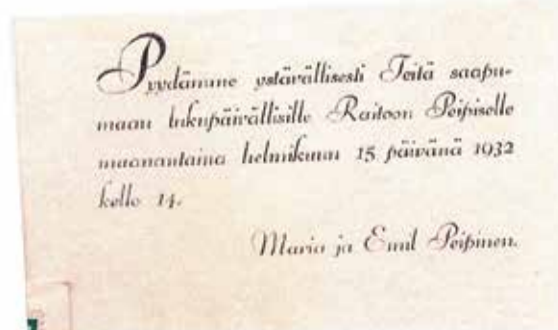 Pyydämme ystävällisesti Teitä saapu-
maan tukupäivällisille Raitoon Peipiselle
maanantaina helmikuun 15 päivänä 1932
kello 14.
Maria ja Emil Peipinen.